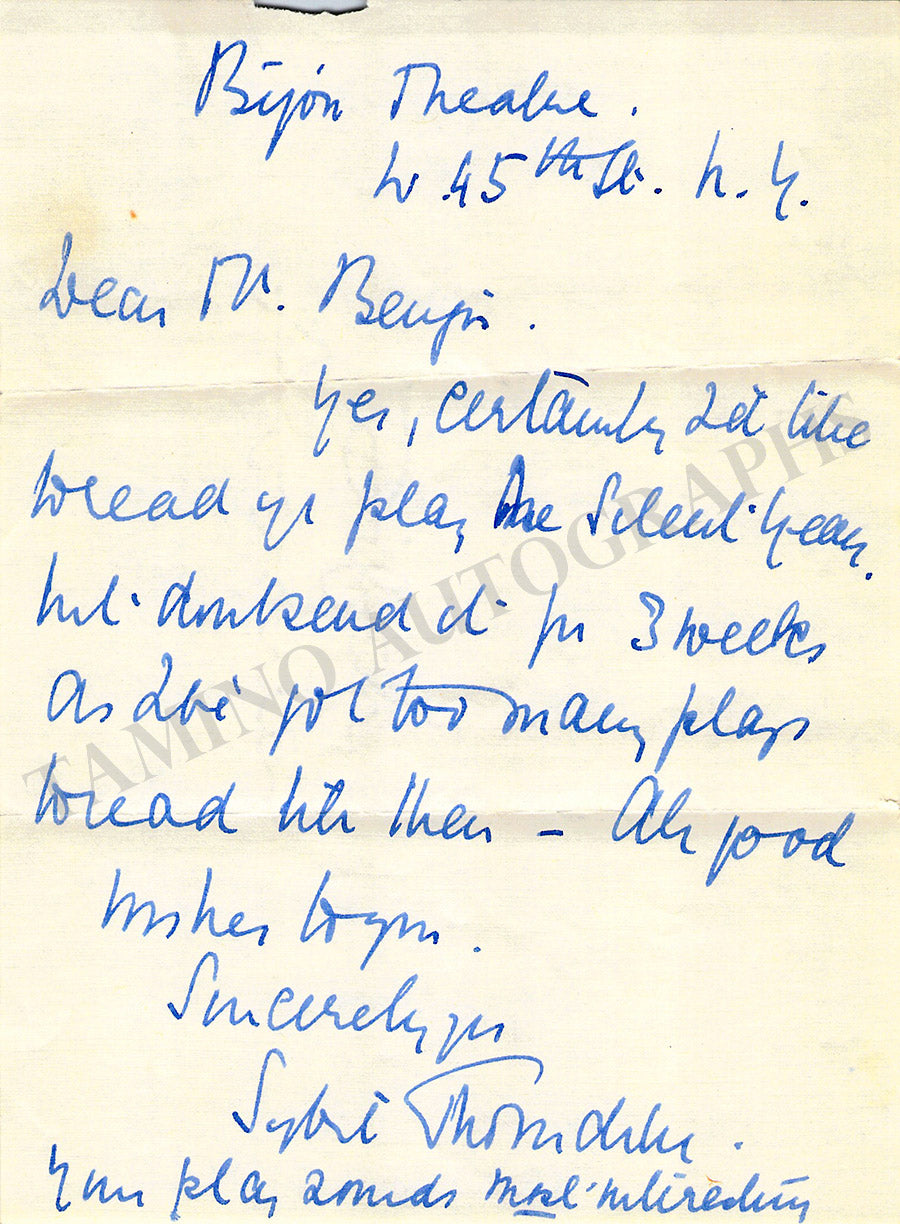 Bijou Theatre.
W. 45th St. N. Y.
Dear Mr. Bengis.
Yes, certainly I'd like
to read yr play The Silent Years.
but don't send it for 3 weeks
as I've got too many plays
to read till then – All good
wishes to you.
Sincerely yrs
Sybil Thorndike.
Your play sounds most interesting
TAMINO AUTOGRAPHS